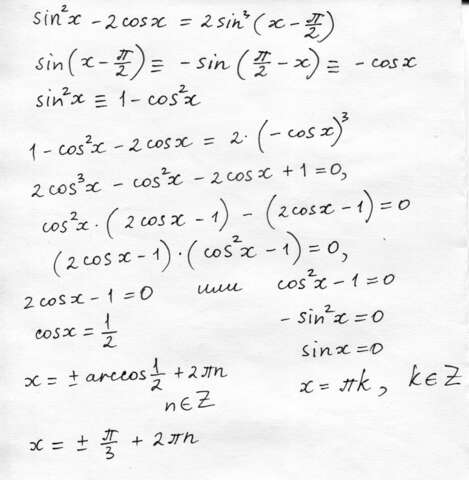 sin²x - 2cosx = 2sin³(x - π/2)
sin(x - π/2) ≡ -sin(π/2 - x) ≡ -cosx
sin²x ≡ 1 - cos²x
1 - cos²x - 2cosx = 2·(-cosx)³
2cos³x - cos²x - 2cosx + 1 = 0,
cos²x·(2cosx - 1) - (2cosx - 1) = 0
(2cosx - 1)·(cos²x - 1) = 0,
2cosx - 1 = 0 или cos²x - 1 = 0
cosx = 1/2
-sin²x = 0
sinx = 0
x = ± arccos 1/2 + 2πn
n∈Z
x = πk, k∈Z
x = ± π/3 + 2πn